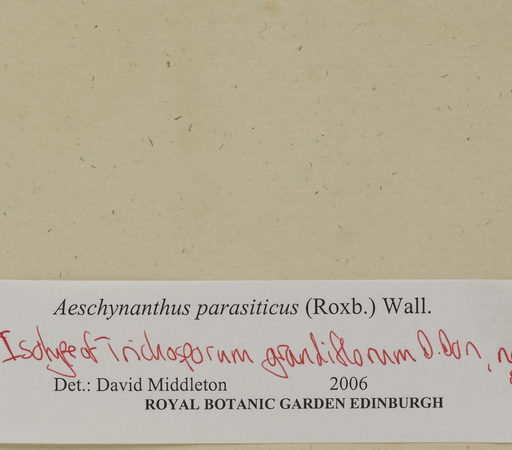 Aeschynanthus parasiticus (Roxb.) Wall.
Isotype of Trichosporum grandiflorum D.Don,
Det.: David Middleton 2006
ROYAL BOTANIC GARDEN EDINBURGH